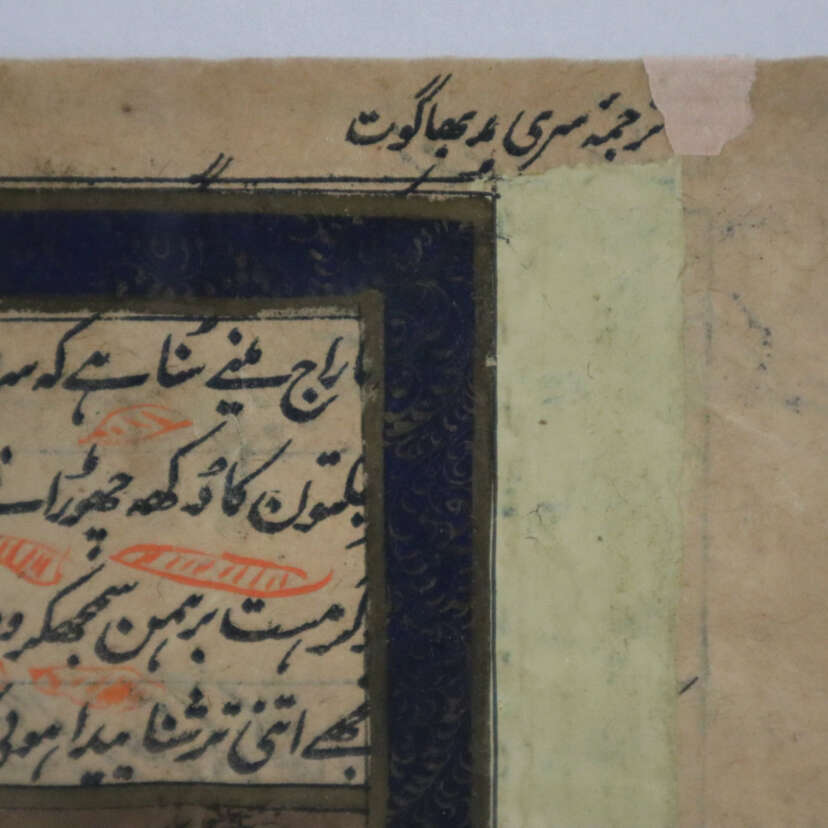 ترجمۂ سری مد بھاگوت
راج مینے سُنا ہے کہ
بھگتون کا دُکھہ چھوڑانے
گرہست برہمن سمجھکر
مجھے اتنی ترشنا پیدا ہوئی